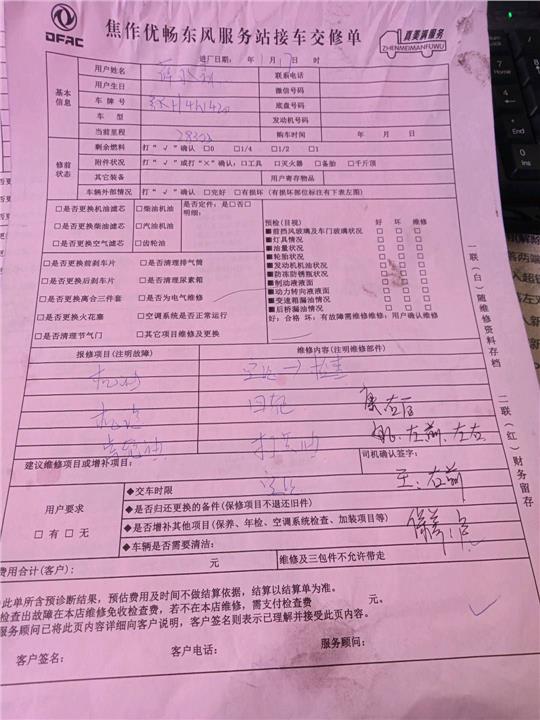 DFAC
焦作优畅东风服务站接车交修单
真美满服务
ZHENMEIMANFUWU
进厂日期: 年 1 月 7 日 时
基本信息
用户姓名
联系电话
用户生日
微信号码
车牌号
底盘号码
车型
发动机号码
当前里程
购车时间 年 月 日
修前状态
剩余燃料 打“√”确认 □0 □1/4 □1/2 □1
附件状况 打“√”或打“×”确认:□工具 □灭火器 □备胎 □千斤顶
其它装备
用户寄存物品
车辆外部情况 打“√”确认 □完好 □有损坏(有损坏部位标注有下表左图)
□是否更换机油滤芯 □柴油机油
□是否更换柴油滤芯 □汽油机油
□是否更换空气滤芯 □齿轮油
是否定件:是□否□
明细:
□是否更换前刹车片 □是否清理排气筒
□是否更换后刹车片 □是否清理尿素箱
□是否更换离合三件套 □是否为电气维修
□是否更换火花塞 □空调系统是否正常运行
□是否清理节气门 □其它项目维修及更换
预检(目视) 好 坏 维修
■前挡风玻璃及车门玻璃状况
■灯具情况
■油量状况
■轮胎状况
■发动机机油状况
■防冻防锈瓶状况
■制动液液面
■动力转向液液面
■变速箱漏油情况
■后桥漏油情况
好:合格 坏:有故障需维修维修:用户确认维修
报修项目(注明故障)
维修内容(注明维修部件)
建议维修项目或增补项目:
司机确认签字:
用户要求
□有 □无
◆交车时限
◆是否归还更换的备件(保修项目不退还旧件)
◆是否增补其他项目(保养、年检、空调系统检查、加装项目等)
◆车辆是否需要清洁:
费用合计(客户): 元
维修及三包件不允许带走
此单所含预诊断结果,预估费用及时间不做结算依据,结算以结算单为准。
检查出故障在本店维修免收检查费,若不在本店维修,需支付检查费 元。
服务顾问已将此页内容详细向客户说明,客户签名则表示已理解并接受此页内容。
客户签名: 客户电话: 服务顾问:
一联(白)随维修资料存档
二联(红)财务留存